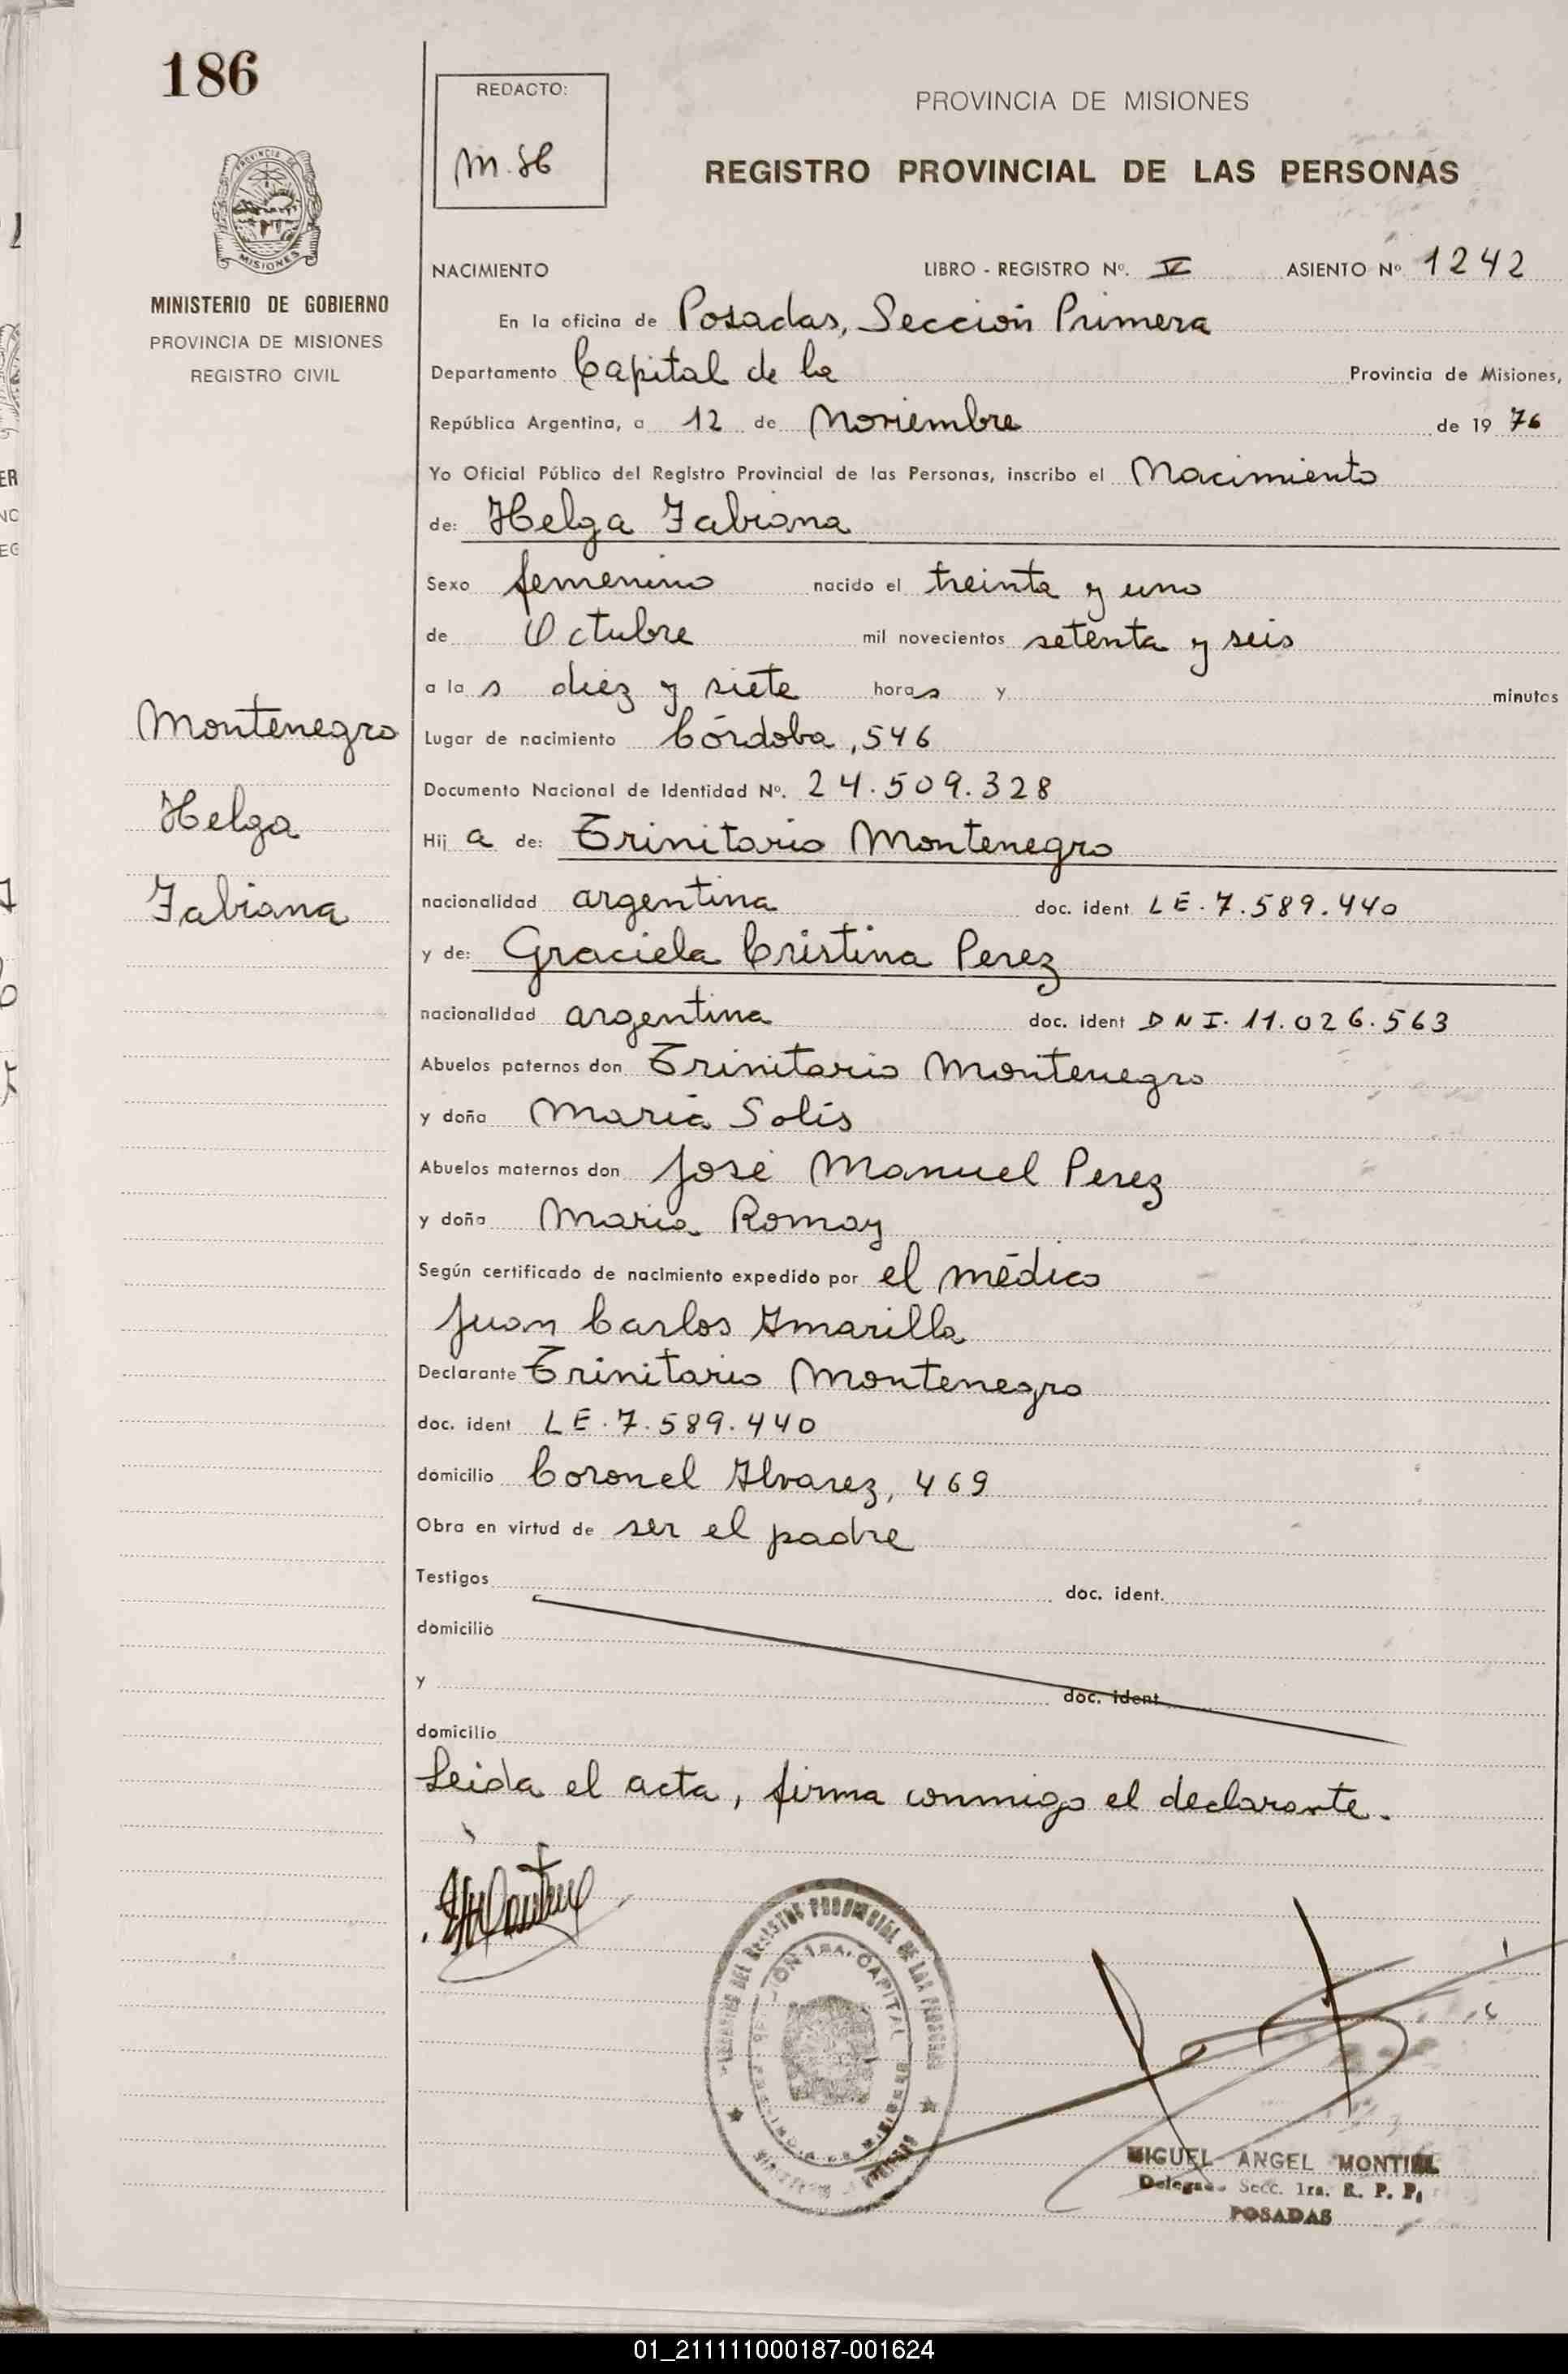 186
REDACTO:
PROVINCIA DE MISIONES
REGISTRO PROVINCIAL DE LAS PERSONAS
PROVINCIA DE
MISIONES
MINISTERIO DE GOBIERNO
PROVINCIA DE MISIONES
REGISTRO CIVIL
NACIMIENTO LIBRO - REGISTRO Nº. V ASIENTO Nº 1242
En la oficina de Posadas, Sección Primera
Departamento Capital de la Provincia de Misiones,
República Argentina, a 12 de Noviembre de 19 76
Yo Oficial Público del Registro Provincial de las Personas, inscribo el Nacimiento
de: Helga Fabiana
Sexo femenino nacido el treinta y uno
de Octubre mil novecientos setenta y seis
a la s diez y siete horas y minutos
Montenegro
Helga
Fabiana
Lugar de nacimiento Córdoba, 546
Documento Nacional de Identidad Nº. 24.509.328
Hij a de: Trinitario Montenegro
nacionalidad argentina doc. ident LE. 7.589.440
y de: Graciela Cristina Perez
nacionalidad argentina doc. ident DNI. 11.026.563
Abuelos paternos don Trinitario Montenegro
y doña Maria Solis
Abuelos maternos don José Manuel Perez
y doña Maria Romay
Según certificado de nacimiento expedido por el médico
Juan Carlos Amarilla
Declarante Trinitario Montenegro
doc. ident LE. 7.589.440
domicilio Coronel Alvarez, 469
Obra en virtud de ser el padre
Testigos doc. ident.
domicilio
y doc. ident
domicilio
Leida el acta, firma conmigo el declarante.
DEL REGISTRO PROVINCIAL DE LAS PERSONAS
1ra. CAPITAL
MIGUEL ANGEL MONTIEL
Delegado Secc. 1ra. R. P. P.
POSADAS
01_211111000187-001624